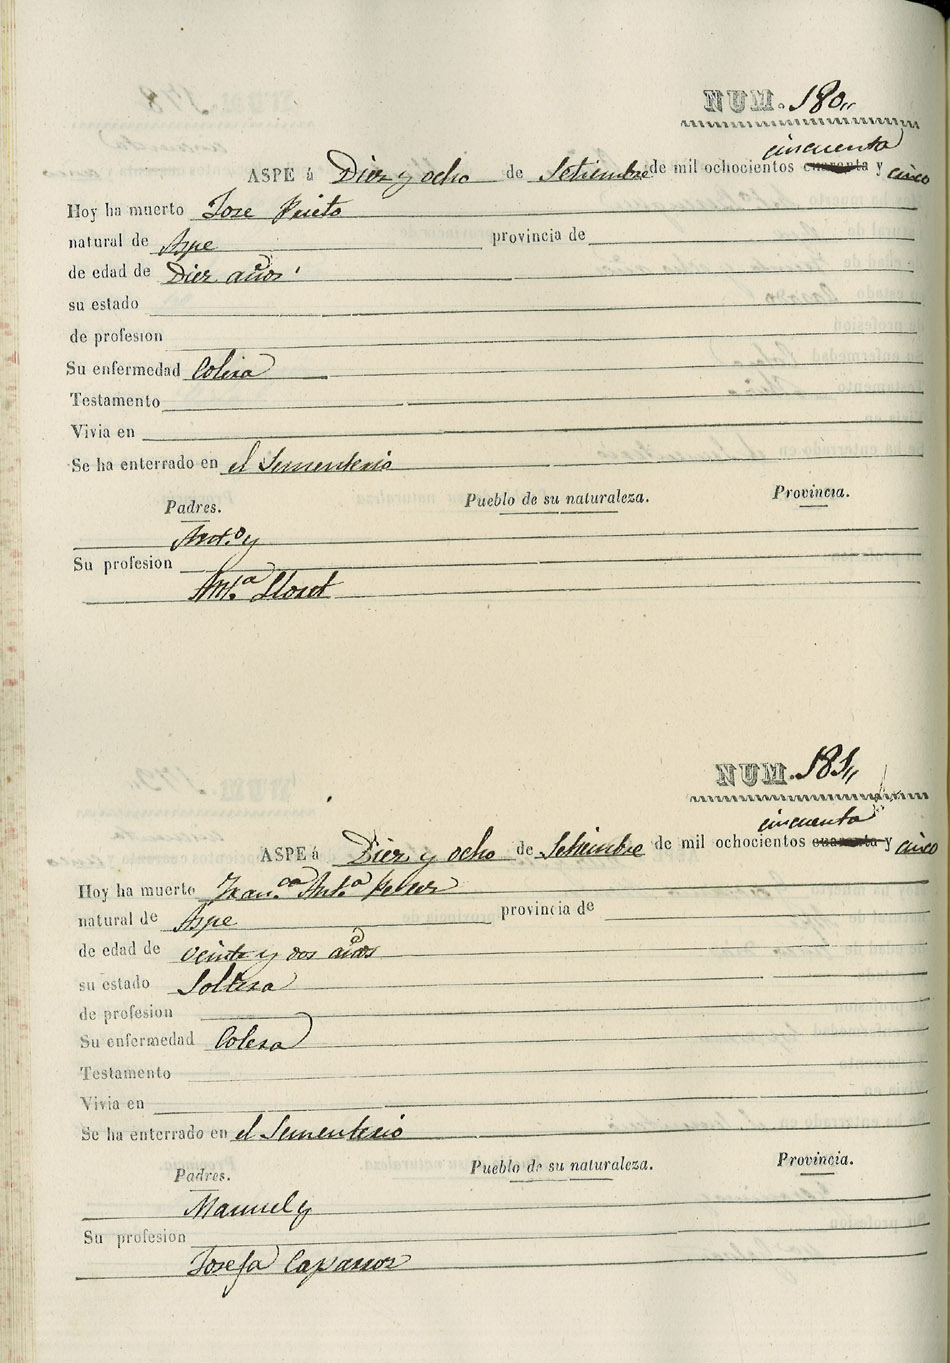 NUM. 180,,
cincuenta
ASPE á Diez y ocho de Setiembre de mil ochocientos cuarenta y cinco
Hoy ha muerto Jose Prieto
natural de Aspe provincia de
de edad de Diez años
su estado
de profesion
Su enfermedad Colera
Testamento
Vivia en
Se ha enterrado en el Sementerio
Padres. Pueblo de su naturaleza. Provincia.
Ant.º y
Su profesion
Ant.ª Lloret
NUM. 181,,
cincuenta
ASPE á Diez y ocho de Setiembre de mil ochocientos cuarenta y cinco
Hoy ha muerto Fran.ca Ant.ª
natural de Aspe provincia de
de edad de veinte y dos años
su estado Soltera
de profesion
Su enfermedad Colera
Testamento
Vivia en
Se ha enterrado en el Sementerio
Padres. Pueblo de su naturaleza. Provincia.
Manuel y
Su profesion
Josefa Caparros